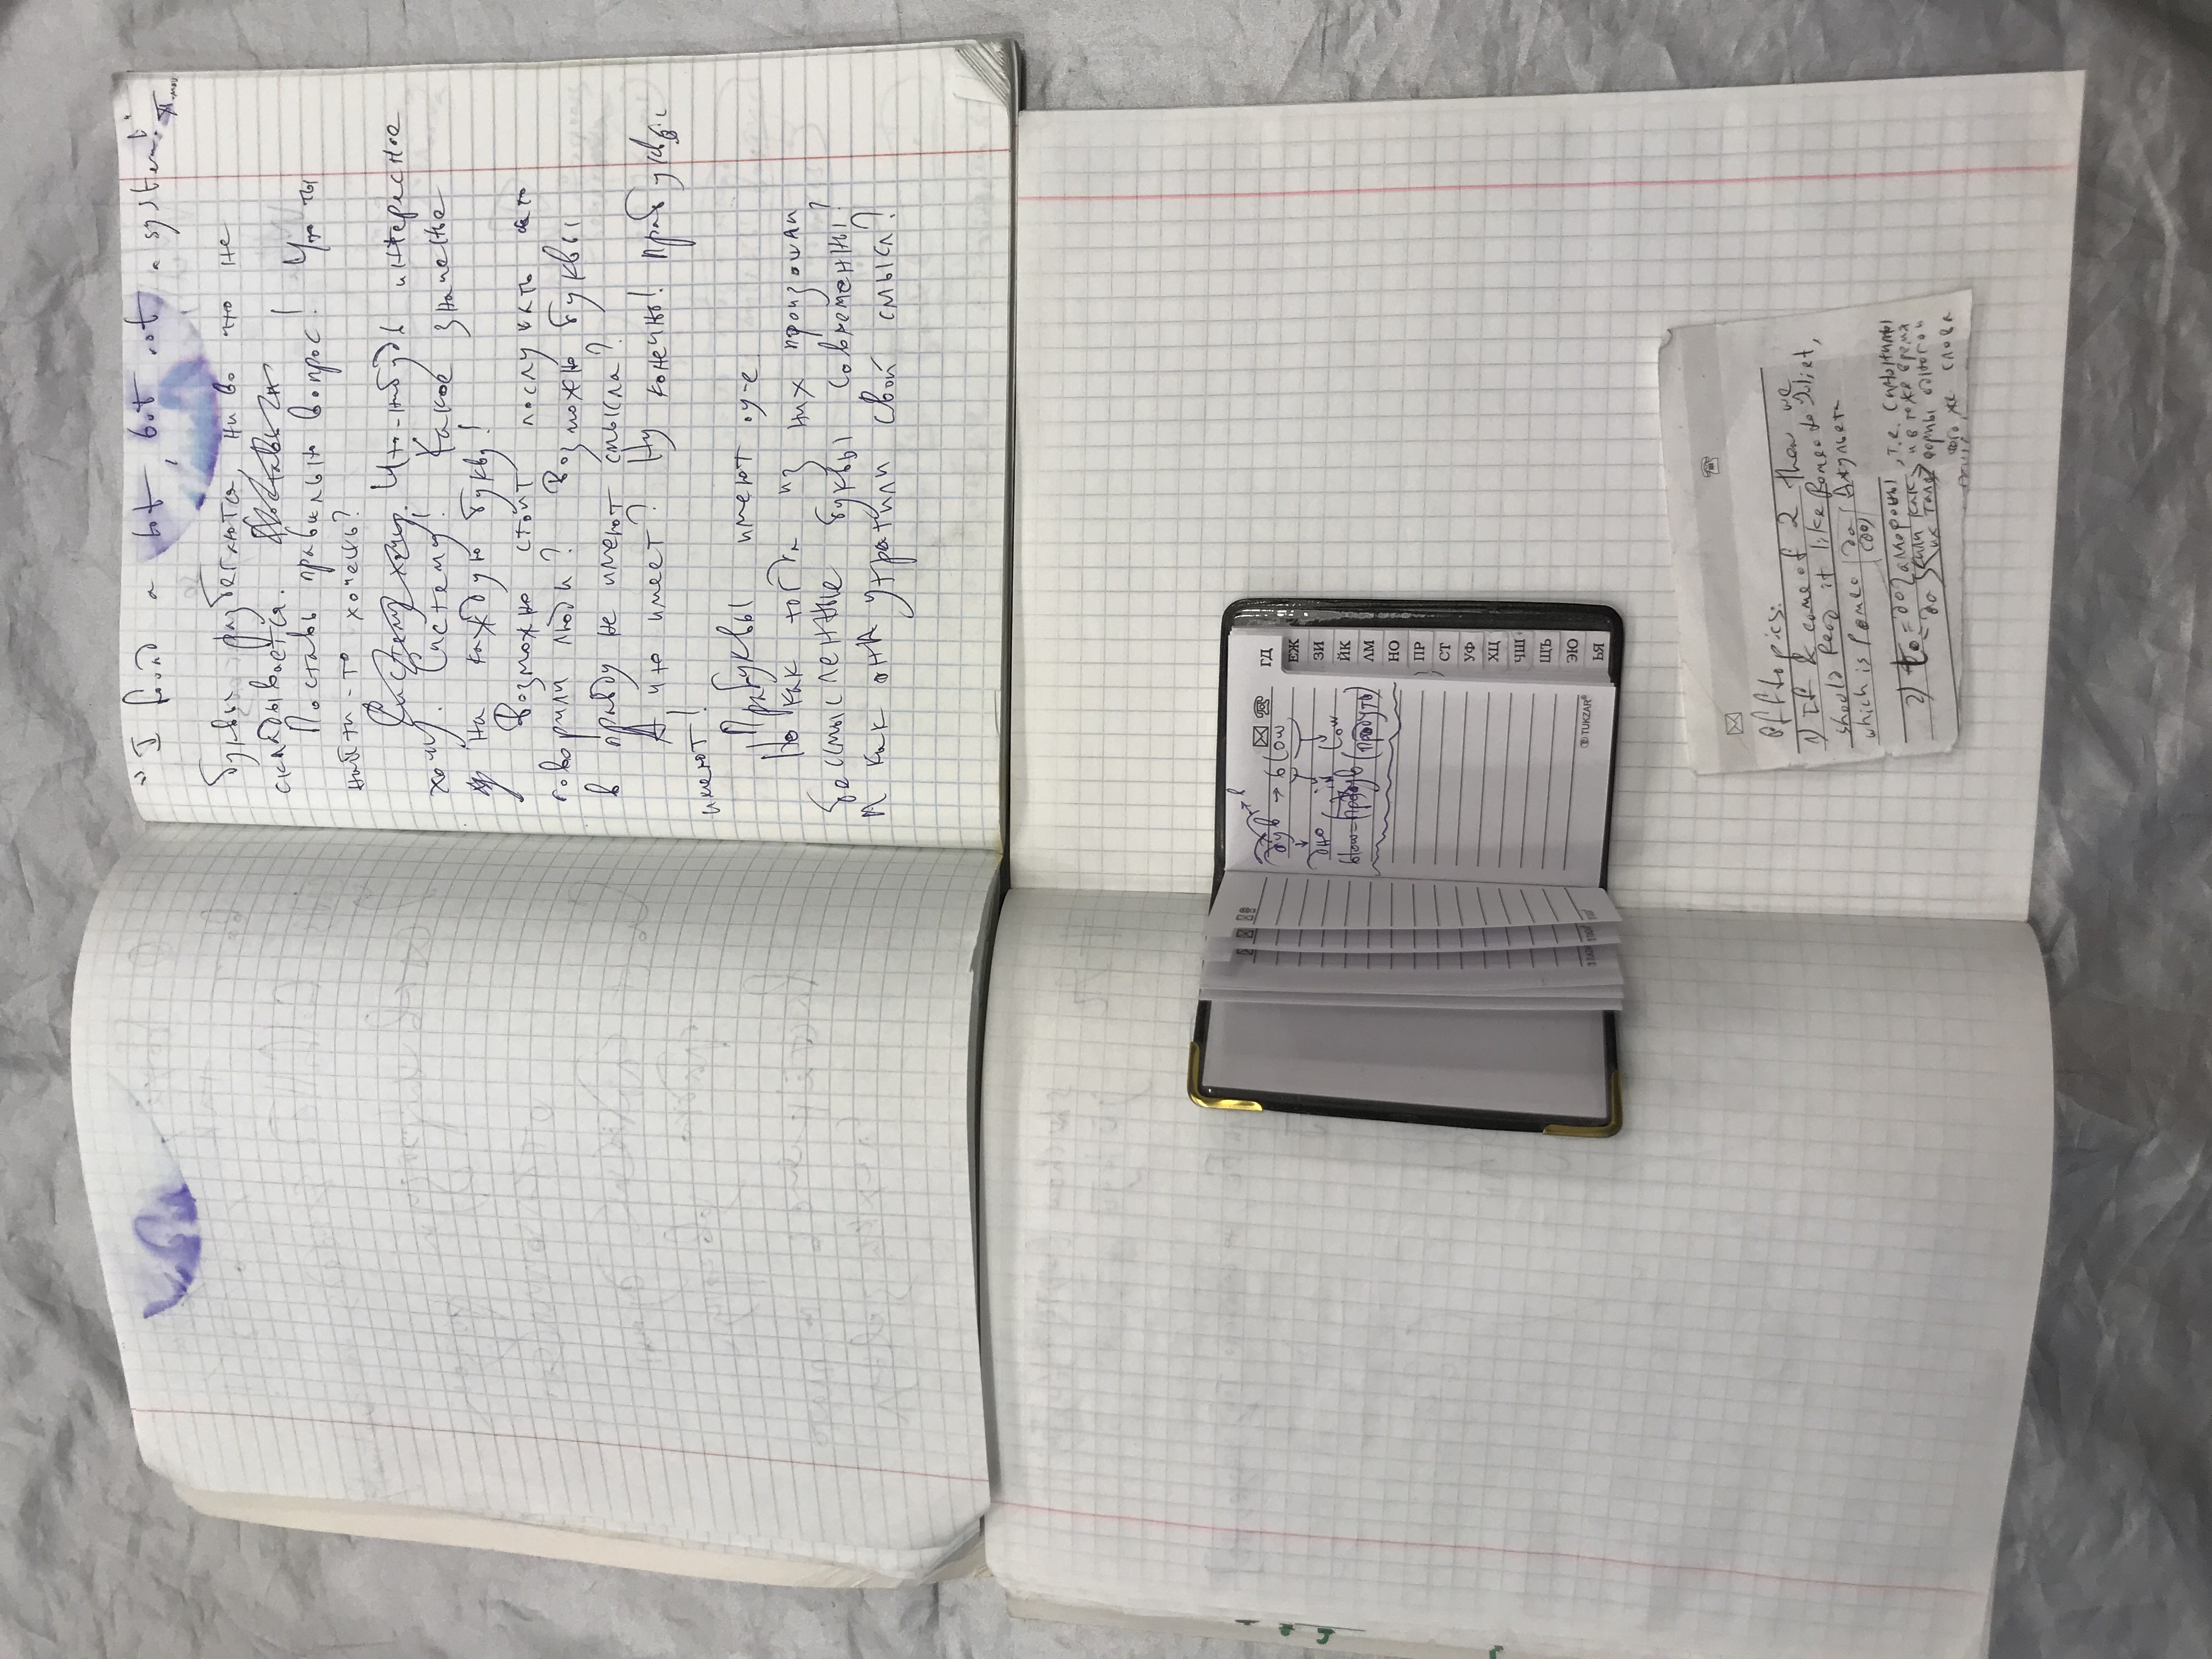 "I found a lot, but not a system!"
буквы разбегаются, ни во что не
складывается.
Поставь правильно вопрос! Что ты
найти-то хочешь?
Систему хочу. Что-нибудь интересное
хочу. Систему! Какое значенье
на каждую букву!
Возможно стоит послушать что
говорили люди? Возможно буквы
в правду не имеют смысла?
А что имеет? Ну конечно! Прабуквы
имеют!
Прабуквы имеют
Но как тогда из них произошли
бессмысленные буквы современны?
И как они утратили свой смысл?
дув → blow
дно
low
blow = продув (продуть)
ГД
ЕЖ
ЗИ
ЙК
ЛМ
НО
ПР
СТ
УФ
ХЦ
ЧШ
ЩЪ
ЭЮ
ЬЯ
TUKZAR®
Offtopics:
1) If & come of 2 then we
should read it like Romeo to Juliet,
which is Romeo да Джульета
(до)
2) to = до аллороны, т.е. синонимы
= да или как и в тоже время
их там формы одного и
того же слова